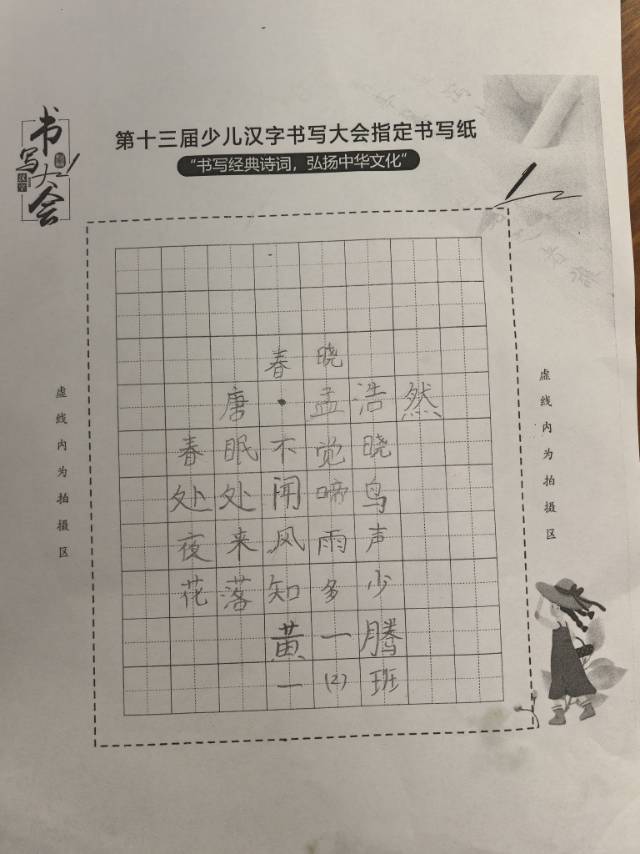 书写大会
汉字
第十三届少儿汉字书写大会指定书写纸
“书写经典诗词，弘扬中华文化”
春晓
唐·孟浩然
春眠不觉晓
处处闻啼鸟
夜来风雨声
花落知多少
黄一腾
一（2）班
虚线内为拍摄区
虚线内为拍摄区